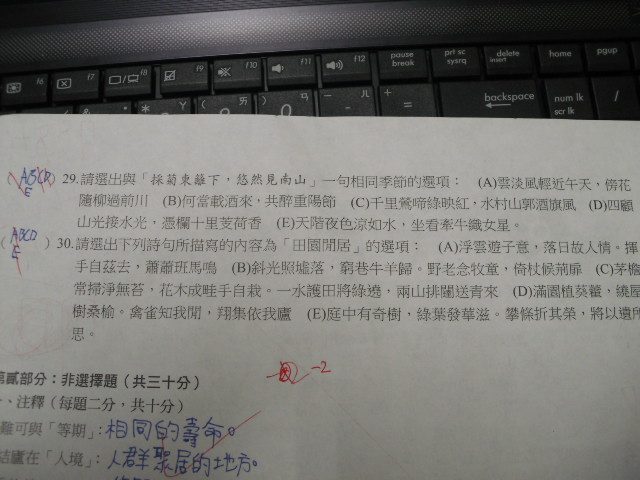 f6 f7 f8 f9 f10 f11 f12 pause break prt sc sysrq delete insert home pgup
backspace num lk scr lk /
ABCD
E
29.請選出與「採菊東籬下，悠然見南山」一句相同季節的選項： (A)雲淡風輕近午天，傍花
隨柳過前川 (B)何當載酒來，共醉重陽節 (C)千里鶯啼綠映紅，水村山郭酒旗風 (D)四顧
山光接水光，憑欄十里芰荷香 (E)天階夜色涼如水，坐看牽牛織女星。
( ABCD
E )
30.請選出下列詩句所描寫的內容為「田園閒居」的選項： (A)浮雲遊子意，落日故人情。揮
手自茲去，蕭蕭班馬鳴 (B)斜光照墟落，窮巷牛羊歸。野老念牧童，倚杖候荊扉 (C)茅檐
常掃淨無苔，花木成畦手自栽。一水護田將綠遶，兩山排闥送青來 (D)滿園植葵藿，繞屋
樹桑榆。禽雀知我閒，翔集依我廬 (E)庭中有奇樹，綠葉發華滋。攀條折其榮，將以遺所
思。
-2
第貳部分：非選擇題（共三十分）
、注釋（每題二分，共十分）
難可與「等期」：相同的壽命。
結廬在「人境」：人群聚居的地方。